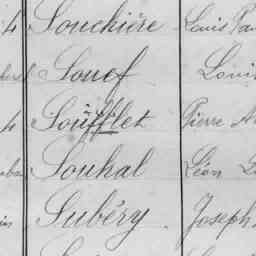 4 Souchière Louis
Souef Loui
4 Soufflet Pierre
Souhal Léon
in Subéry Joseph